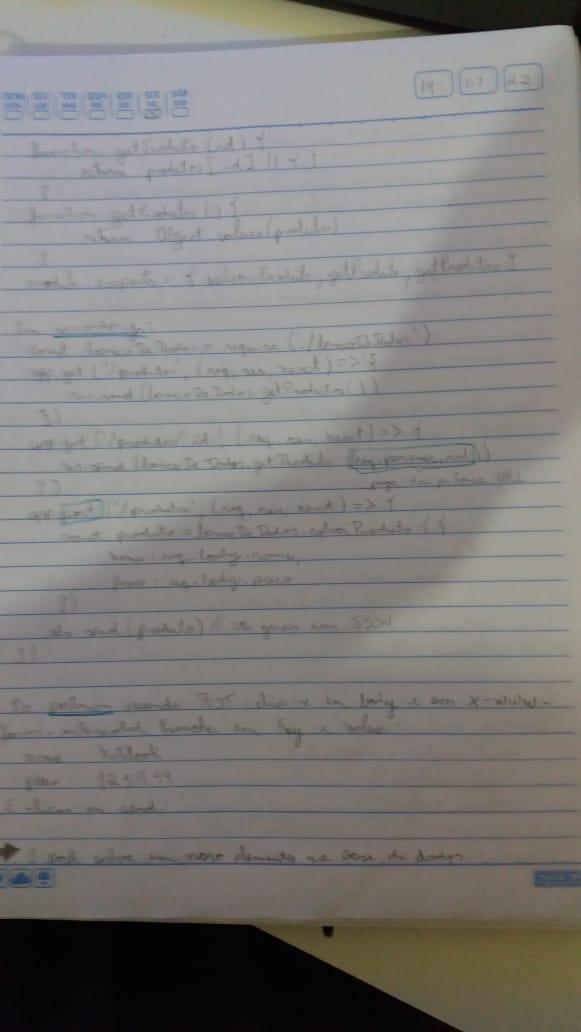 DOM SEG TER QUA QUI SEX SÁB
function getProduto (id) {
return produtos [id] || { }
}
function getProdutos () {
return Object.values(produtos)
}
module.exports = { salvarProduto, getProduto, getProdutos }
const bancoDeDados = require ('./bancoDeDados')
app.get ('/produtos', (req, res, next) => {
res.send (bancoDeDados.getProdutos ())
})
app.get ('/produtos/:id', (req, res, next) => {
res.send (bancoDeDados.getProduto (req.params.id))
})
pega da própria URL
app.post ('/produtos', (req, res, next) => {
const produto = bancoDeDados.salvarProduto ({
nome: req.body.nome,
preco: req.body.preco
})
res.send (produto) // gerar um JSON
})
No postman usando POST, clica-se em body e em x-www-
form-urlencoded em key e value:
nome Notebook
E clicar em send.
O post salva um novo elemento na base de dados